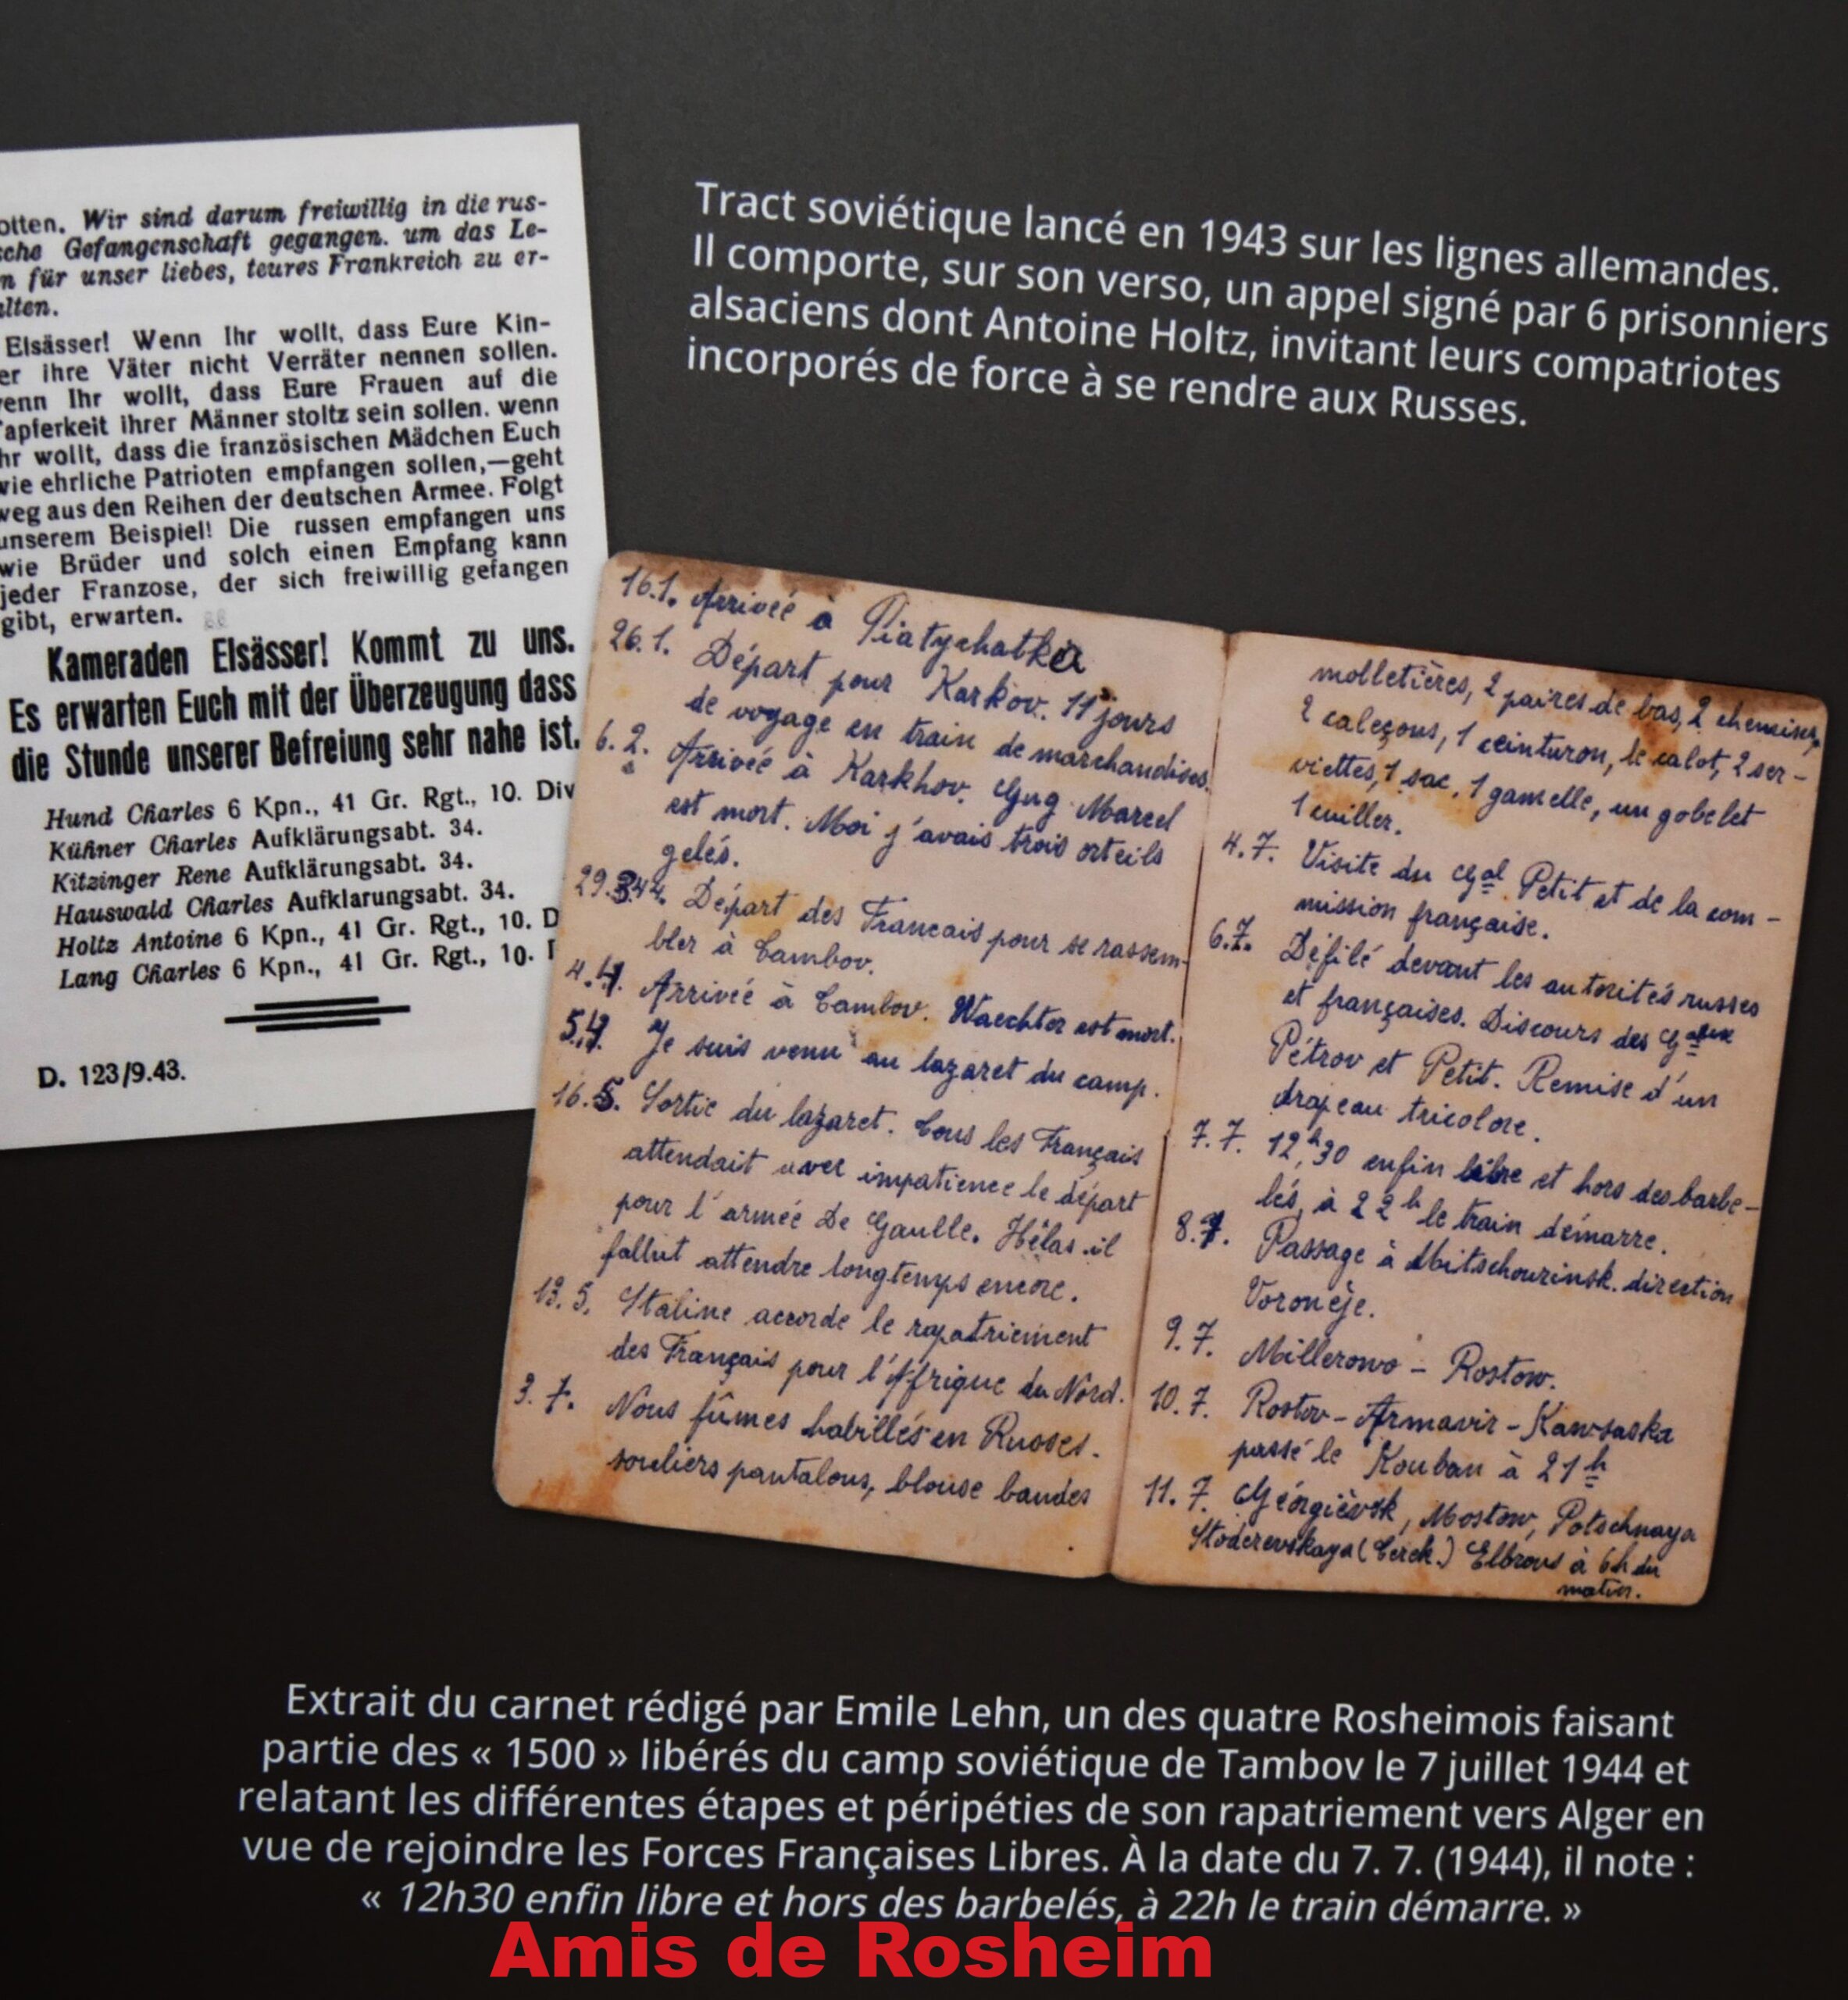 otten. Wir sind darum freiwillig in die rus-
sche Gefangenschaft gegangen. um das Le-
n für unser liebes, teures Frankreich zu er-
alten.
Elsässer! Wenn Ihr wollt, dass Eure Kin-
er ihre Väter nicht Verräter nennen sollen.
wenn Ihr wollt, dass Eure Frauen auf die
Tapferkeit ihrer Männer stoltz sein sollen. wenn
hr wollt, dass die französischen Mädchen Euch
wie ehrliche Patrioten empfangen sollen,—geht
weg aus den Reihen der deutschen Armee. Folgt
unserem Beispiel! Die russen empfangen uns
wie Brüder und solch einen Empfang kann
jeder Franzose, der sich freiwillig gefangen
gibt, erwarten.
Kameraden Elsässer! Kommt zu uns.
Es erwarten Euch mit der Überzeugung dass
die Stunde unserer Befreiung sehr nahe ist.
Hund Charles 6 Kpn., 41 Gr. Rgt., 10. Div
Kühner Charles Aufklärungsabt. 34.
Kitzinger Rene Aufklärungsabt. 34.
Hauswald Charles Aufklarungsabt. 34.
Holtz Antoine 6 Kpn., 41 Gr. Rgt., 10. D
Lang Charles 6 Kpn., 41 Gr. Rgt., 10.
D. 123/9.43.
Tract soviétique lancé en 1943 sur les lignes allemandes.
Il comporte, sur son verso, un appel signé par 6 prisonniers
alsaciens dont Antoine Holtz, invitant leurs compatriotes
incorporés de force à se rendre aux Russes.
16.1. Arriveé à Piatychatka
26.1. Départ pour Karkov. 11 jours
de voyage en train de marchandises.
6.2. Arriveé à Karkhov. Gug Marcel
est mort. Moi j'avais trois orteils
gelés.
29.3.44. Départ des Francais pour se rassem-
bler à Tambov.
4.4. Arriveé à Tambov. Waechter est mort.
5.4. Je suis venu au lazaret du camp.
16.5. Sortie du lazaret. Tous les Français
attendait avec impatience le départ
pour l'armée De Gaulle. Hélas il
fallut attendre longtemps encore.
13.5. Staline accorde le rapatriement
des Français pour l'Affrique du Nord.
3.7. Nous fûmes habillés en Russes.
souliers pantalons, blouse bandes
molletières, 2 paires de bas, 2 chemises,
2 caleçons, 1 ceinturon, le calot, 2 ser-
viettes, 1 sac, 1 gamelle, un gobelet
1 cuiller.
4.7. Visite du Gal Petit et de la com-
mission française.
6.7. Défilé devant les autorités russes
et françaises. Discours des Gaux
Pétrov et Petit. Remise d'un
drapeau tricolore.
7.7. 12h,30 enfin libre et hors des barbe-
lés, à 22h le train démarre.
8.7. Passage à Mitschourinsk. direction
Voronèje.
9.7. Millerowo - Rostow.
10.7. Rostov - Armavir - Kawsaska
passé le Kouban à 21h
11.7. Géorgièvsk, Mostow, Potschnaya
Stoderevskaya (Terek.) Elbrous à 6h du
matin.
Extrait du carnet rédigé par Emile Lehn, un des quatre Rosheimois faisant
partie des « 1500 » libérés du camp soviétique de Tambov le 7 juillet 1944 et
relatant les différentes étapes et péripéties de son rapatriement vers Alger en
vue de rejoindre les Forces Françaises Libres. À la date du 7. 7. (1944), il note :
« 12h30 enfin libre et hors des barbelés, à 22h le train démarre. »
Amis de Rosheim